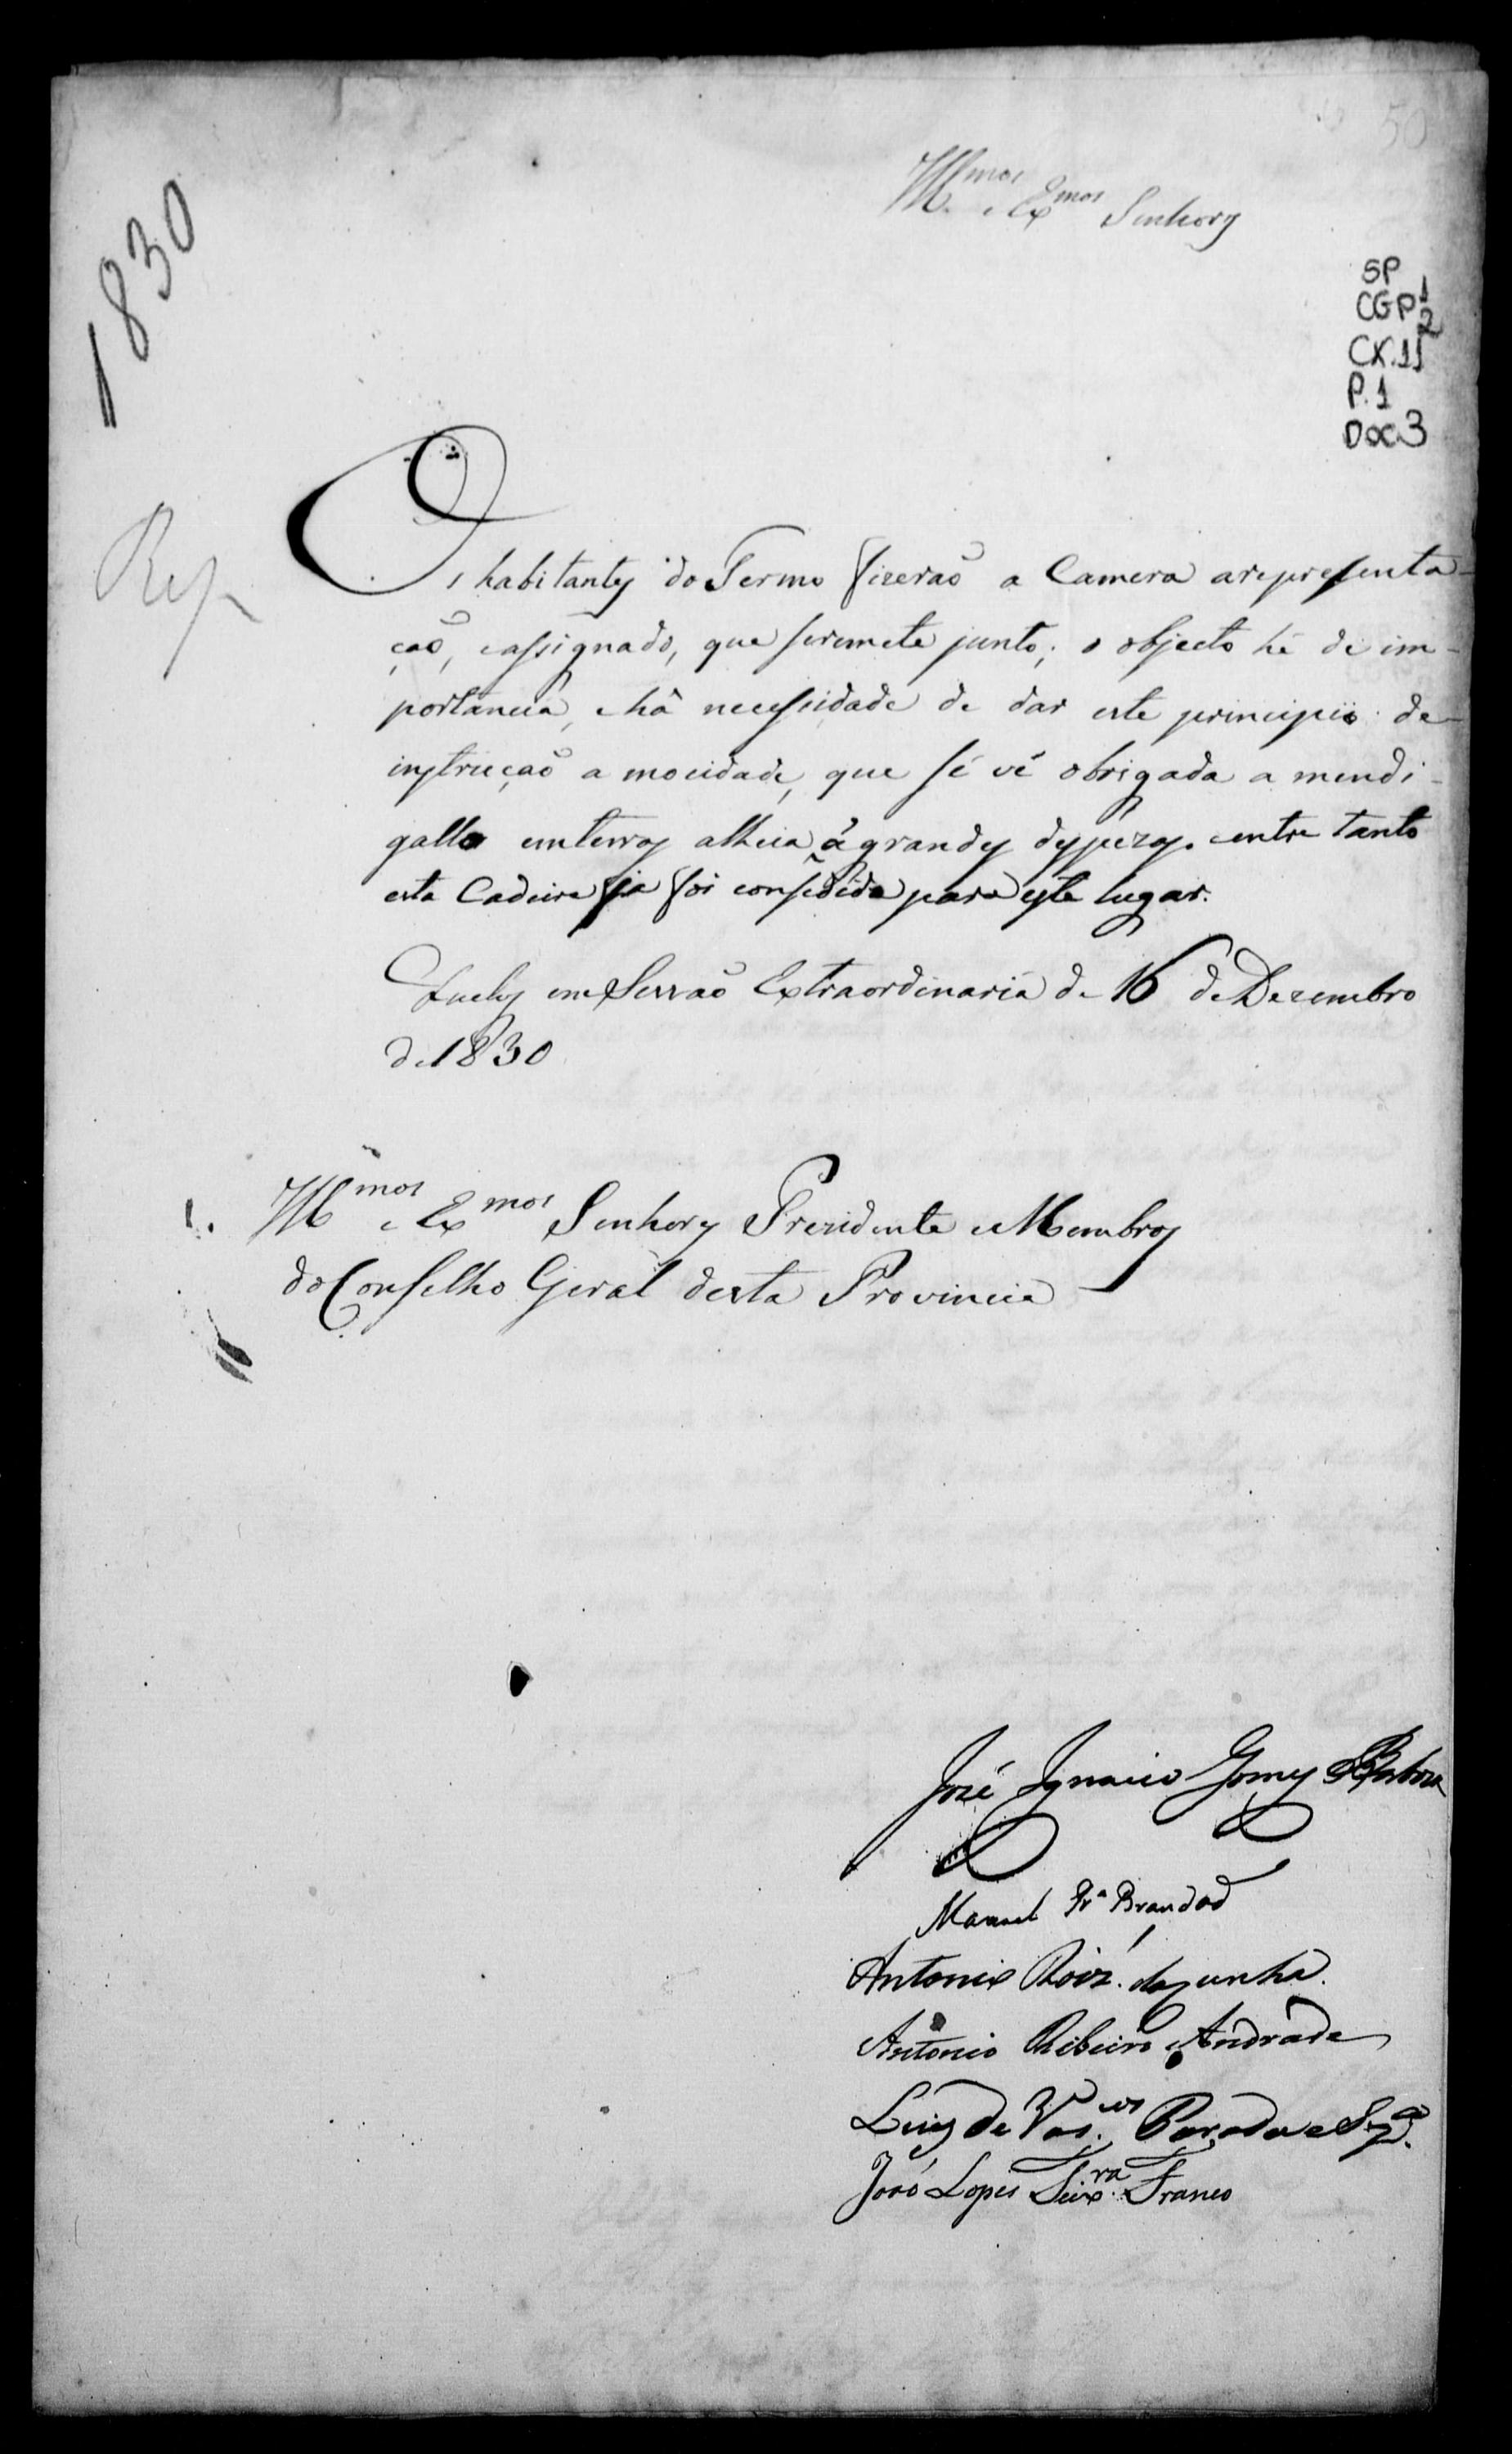 50
Ill.mos e Ex.mos Senhores
1830
SP
CGP 1
2
CX.11
P.1
Doc 3
Rep
Os habitantes do Termo fizeraõ a Camera arepresenta-
çaõ, eassignado, que seremete junto; o objecto hé de im-
portancia, e há necessidade de dar este principio de
instrucçaõ a mocidade, que sé vé obrigada a mendi-
galla emterras alheia á grandes despezas. entre tanto
esta Cadeira já foi consedida para este lugar.
Queluz em Sessaõ Extraordinaria de 16 de Dezembro
de 1830
Ill.mos e Ex.mos Senhores Prezidente e Membros
do Conselho Geral desta Provincia
José Ignacio Gomes Barboza
Manuel Frª Brandaõ
Antonio Roiz. da Cunha.
Antonio Ribeiro Andrade
Luiz de Vas.cos Parada e Sz.ª
João Lopes Teix.ra Franco